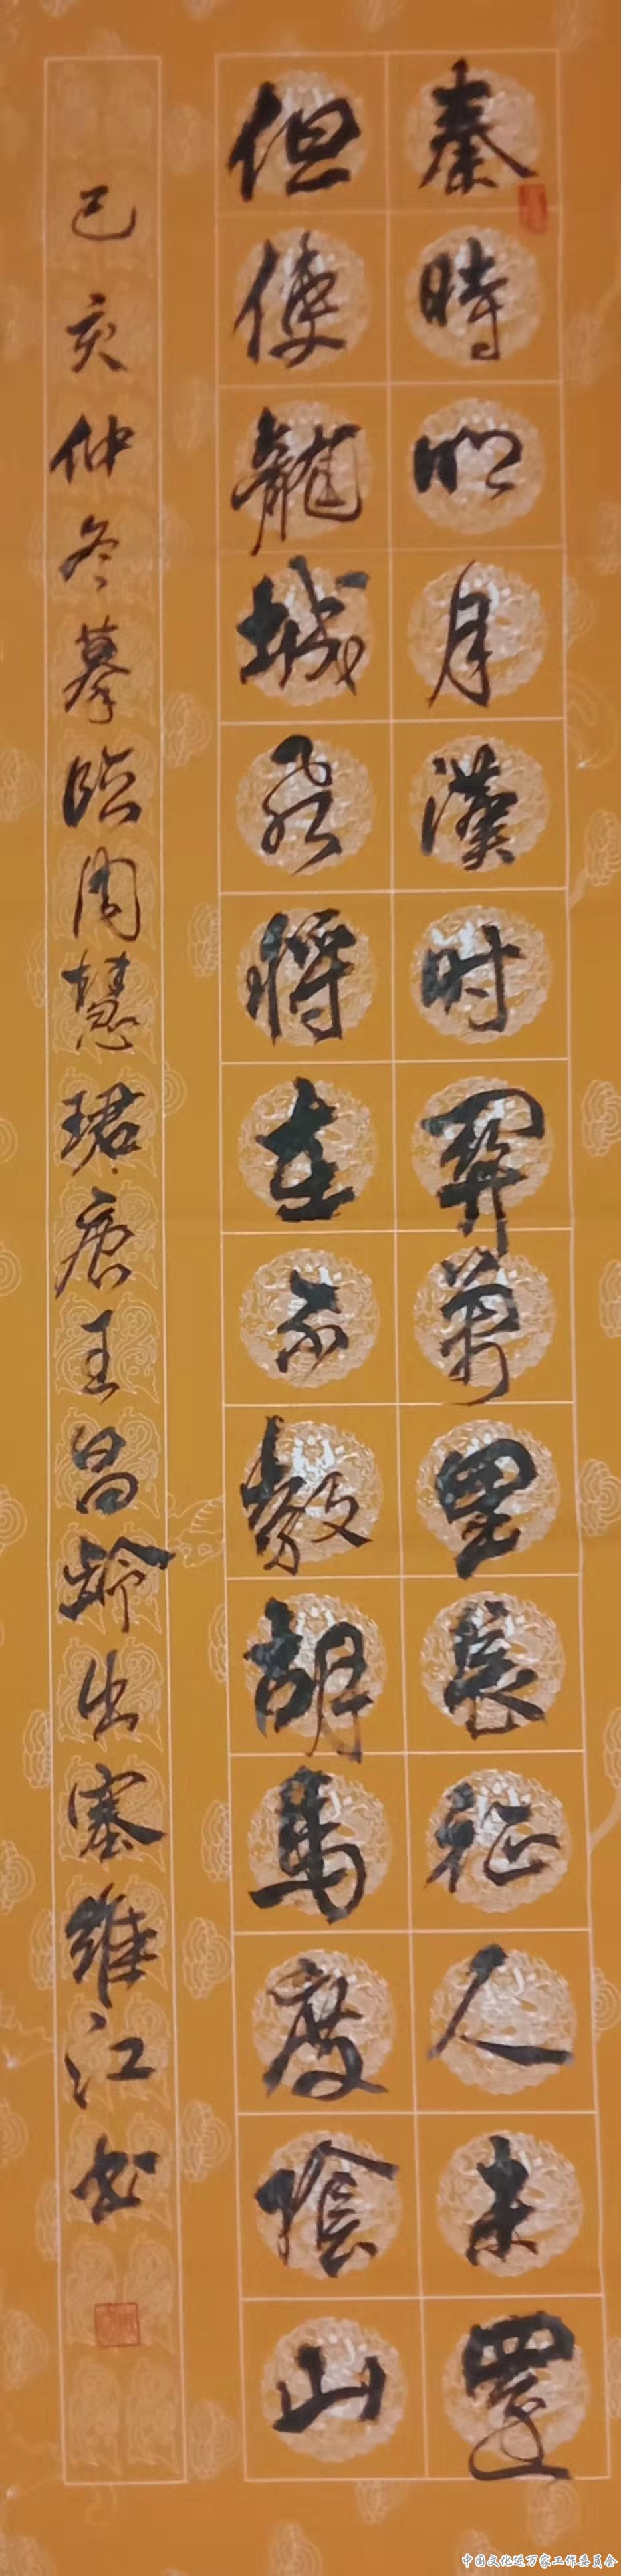 秦時明月漢时關萬里長征人未還
但使龍城飛將在不教胡馬度陰山
己亥仲冬摹臨周慧珺唐王昌齡出塞維江书
中国文化进万家工作委员会